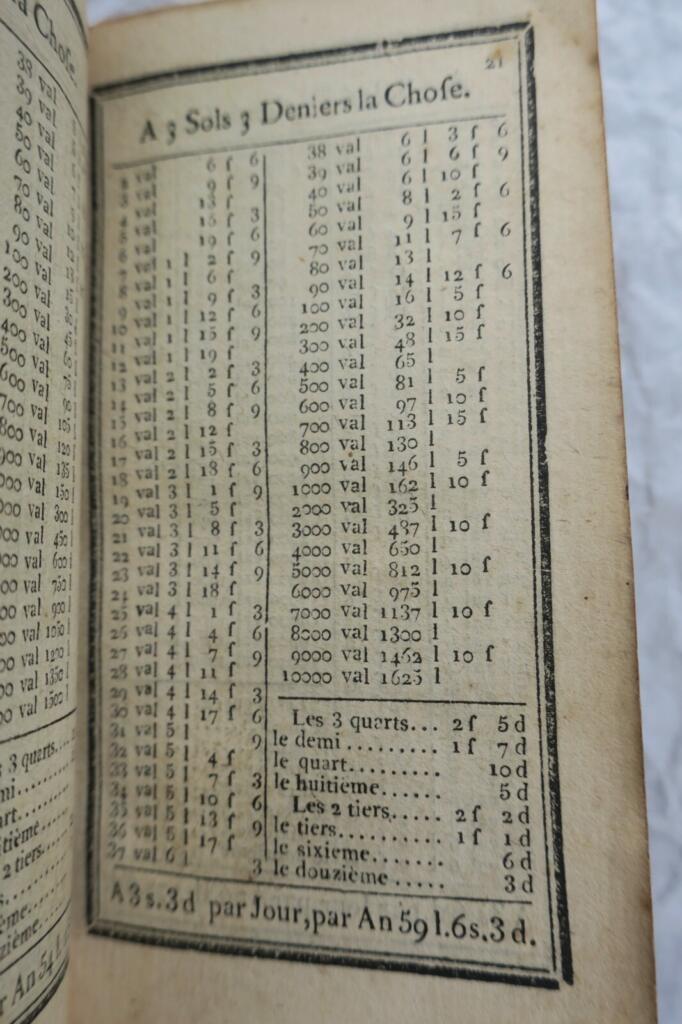 la Choſe.
38 val
39 val
40 val
50 val
60 val
70 val
80 val
90 val
100 val
200 val
300 val
400 val
500 val
600 val
700 val
800 val
3 quarts.
2 tiers
21
A 3 Sols 3 Deniers la Choſe.
2 val 6 ſ 6
3 val 9 ſ 9
4 val 13 ſ
5 val 16 ſ 3
6 val 19 ſ 6
7 val 1 l 2 ſ 9
8 val 1 l 6 ſ
9 val 1 l 9 ſ 3
10 val 1 l 12 ſ 6
11 val 1 l 15 ſ 9
12 val 1 l 19 ſ
13 val 2 l 2 ſ 3
14 val 2 l 5 ſ 6
15 val 2 l 8 ſ 9
16 val 2 l 12 ſ
17 val 2 l 15 ſ 3
18 val 2 l 18 ſ 6
19 val 3 l 1 ſ 9
20 val 3 l 5 ſ
21 val 3 l 8 ſ 3
22 val 3 l 11 ſ 6
23 val 3 l 14 ſ 9
24 val 3 l 18 ſ
25 val 4 l 1 ſ 3
26 val 4 l 4 ſ 6
27 val 4 l 7 ſ 9
28 val 4 l 11 ſ
29 val 4 l 14 ſ 3
30 val 4 l 17 ſ 6
31 val 5 l 9
32 val 5 l 4 ſ
33 val 5 l 7 ſ 3
34 val 5 l 10 ſ 6
35 val 5 l 13 ſ 9
36 val 5 l 17 ſ
37 val 6 l 3
38 val 6 l 3 ſ 6
39 val 6 l 6 ſ 9
40 val 6 l 10 ſ
50 val 8 l 2 ſ 6
60 val 9 l 15 ſ
70 val 11 l 7 ſ 6
80 val 13 l
90 val 14 l 12 ſ 6
100 val 16 l 5 ſ
200 val 32 l 10 ſ
300 val 48 l 15 ſ
400 val 65 l
500 val 81 l 5 ſ
600 val 97 l 10 ſ
700 val 113 l 15 ſ
800 val 130 l
900 val 146 l 5 ſ
1000 val 162 l 10 ſ
2000 val 325 l
3000 val 487 l 10 ſ
4000 val 650 l
5000 val 812 l 10 ſ
6000 val 975 l
7000 val 1137 l 10 ſ
8000 val 1300 l
9000 val 1462 l 10 ſ
10000 val 1625 l
Les 3 quarts... 2 ſ 5 d
le demi ......... 1 ſ 7 d
le quart......... 10 d
le huitième...... 5 d
Les 2 tiers..... 2 ſ 2 d
le tiers.......... 1 ſ 1 d
le sixieme....... 6 d
le douzième ..... 3 d
A 3 s. 3 d par Jour, par An 59 l. 6 s. 3 d.